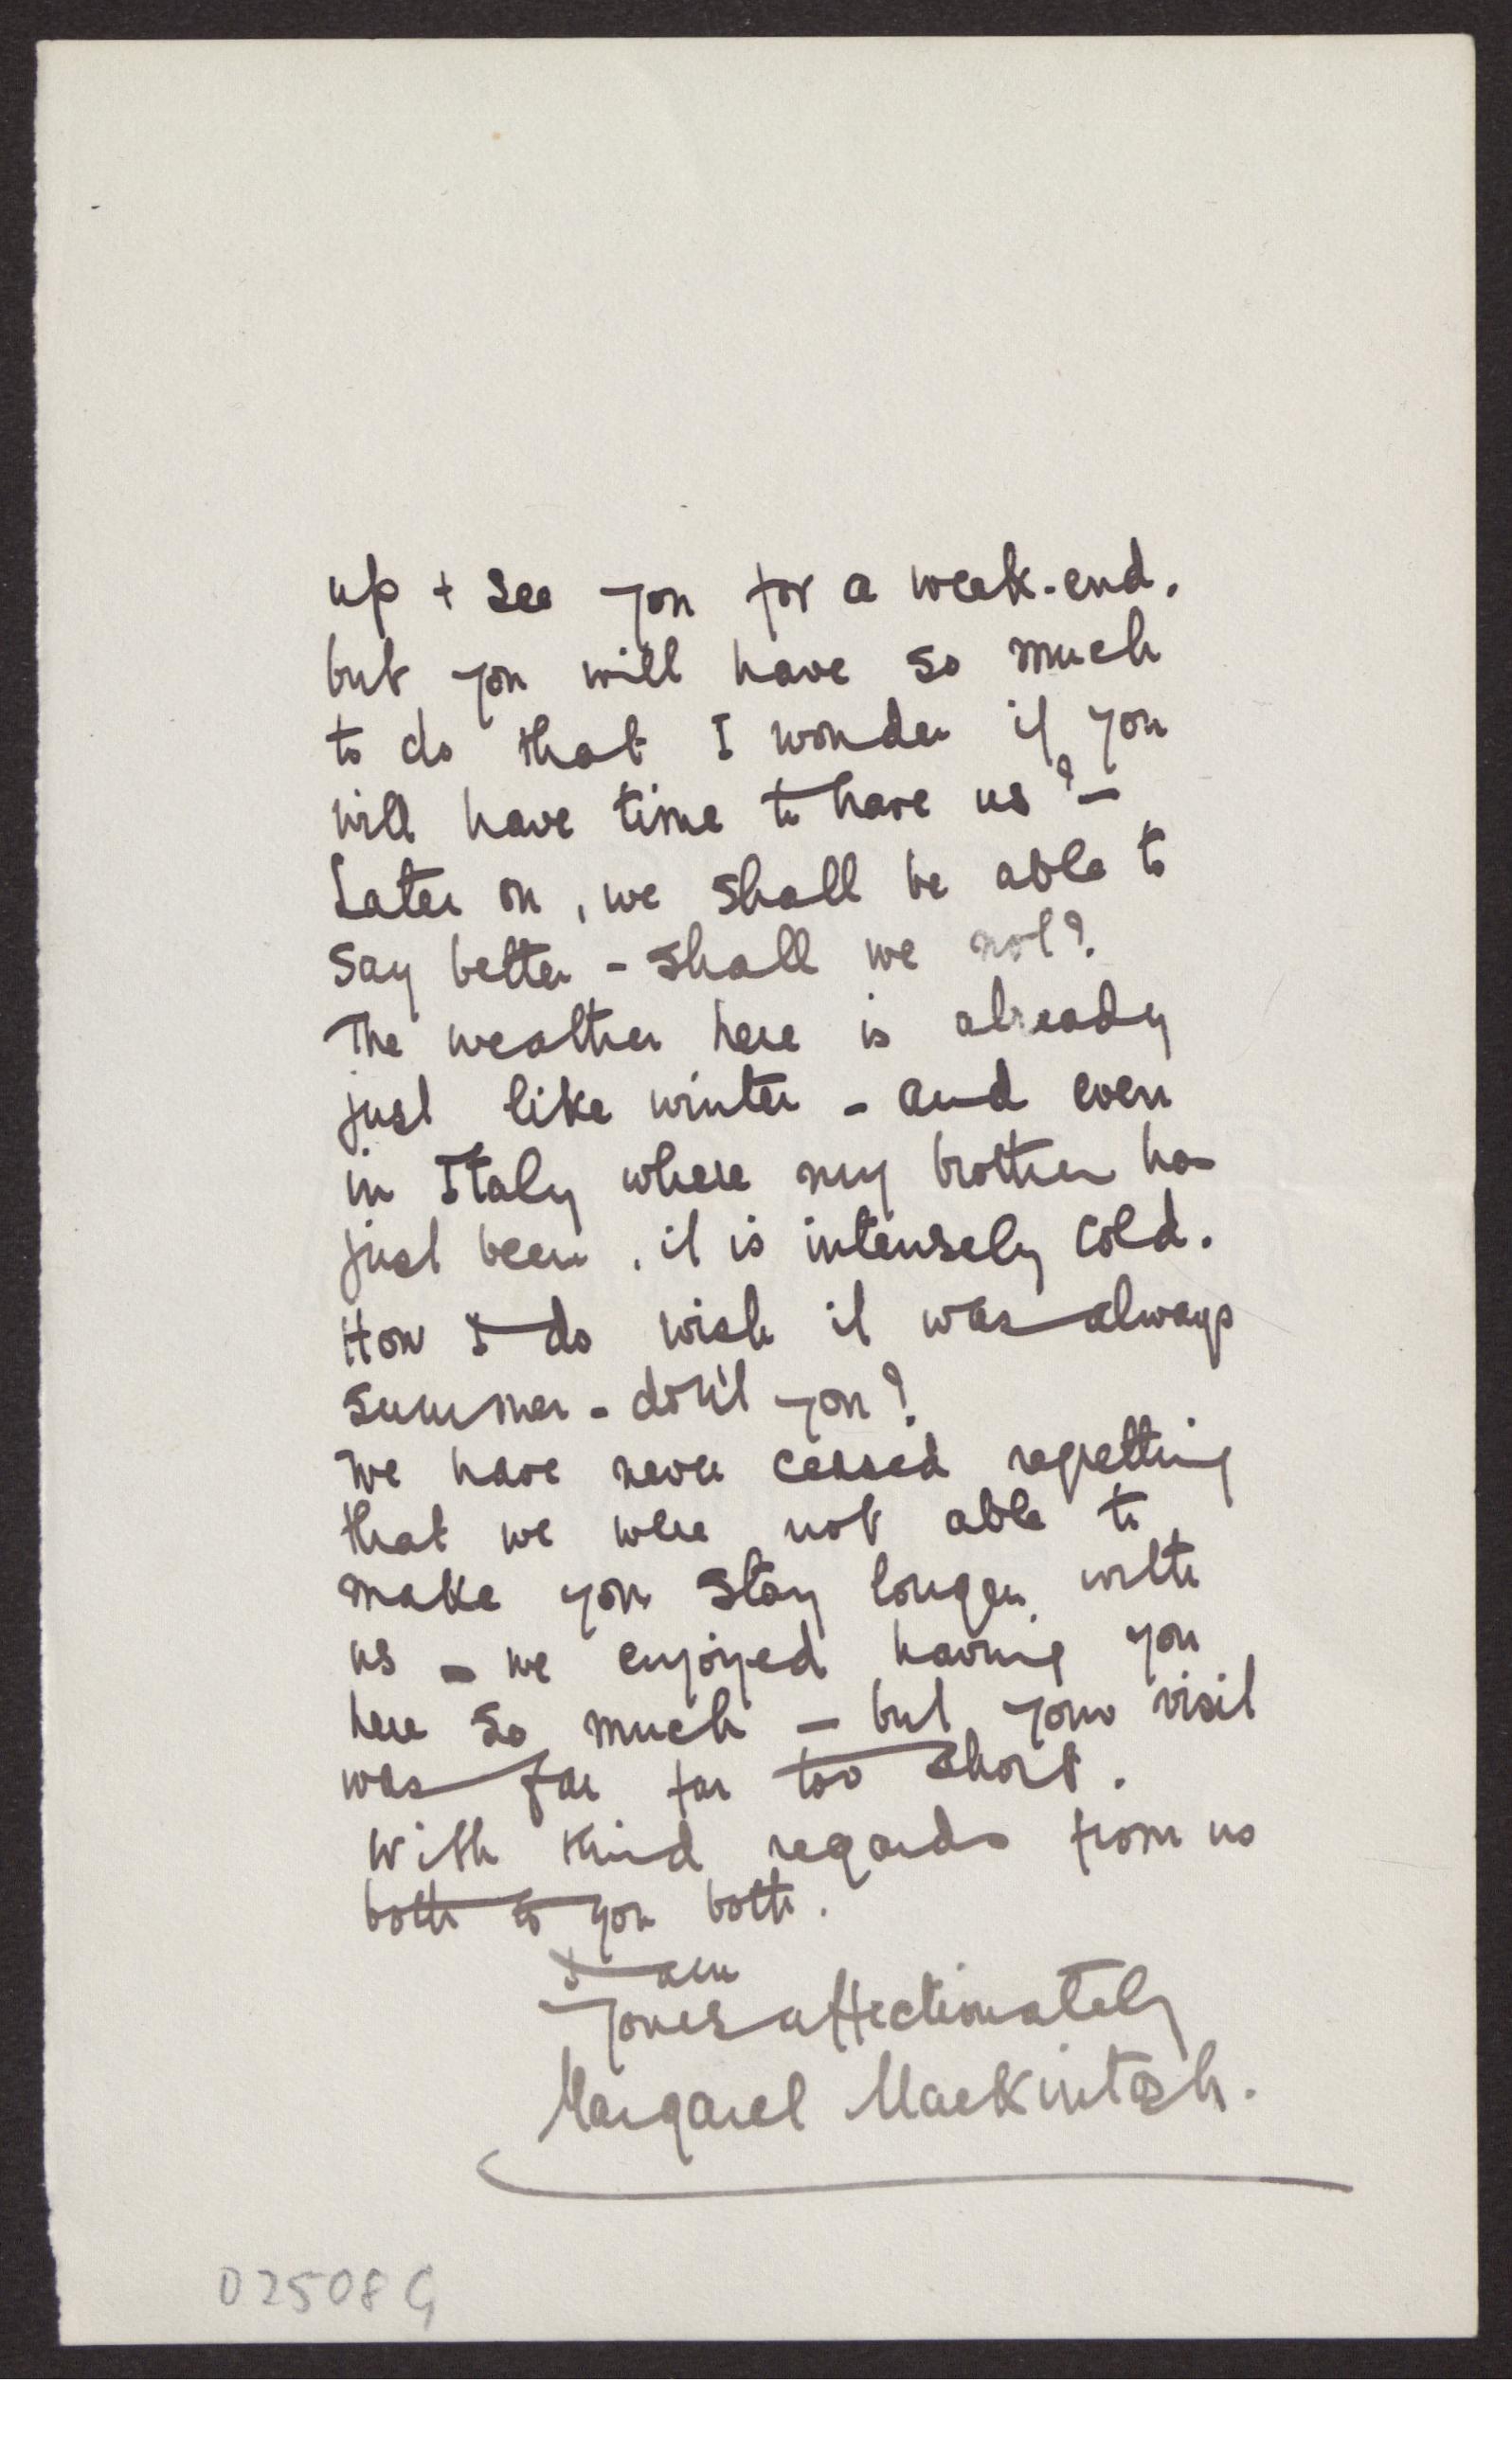 up + see you for a week-end.
but you will have so much
to do that I wonder if you
will have time to have us? –
Later on, we shall be able to
say better – shall we not?
The weather here is already
just like winter – and even
in Italy where my brother has
just been, it is intensely cold.
How I do wish it was always
summer – don't you?
We have never ceased regretting
that we were not able to
make you stay longer with
us – we enjoyed having you
here so much – but your visit
was far far too short.
With kind regards from us
both to you both.
I am
Yours affectionately
Margaret Mackintosh.
02508G